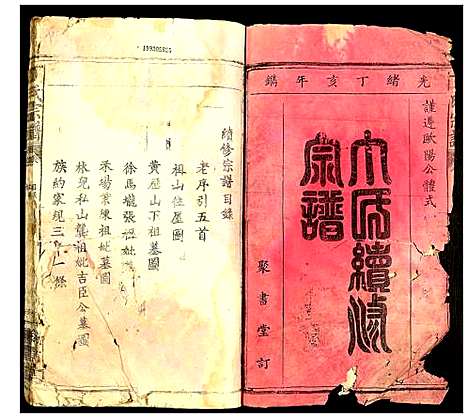 光緒丁亥年鐫
謹遵歐陽公體式
氏續修
宗譜
聚書堂訂
續修宗譜目錄
老序引五首
祖山住屋圖
黃屋山下祖墓圖
徐馬壠張祖妣
禾場業陳祖妣墓圖
林兒私山龔祖妣吉臣公墓圖
族約家規三十一條